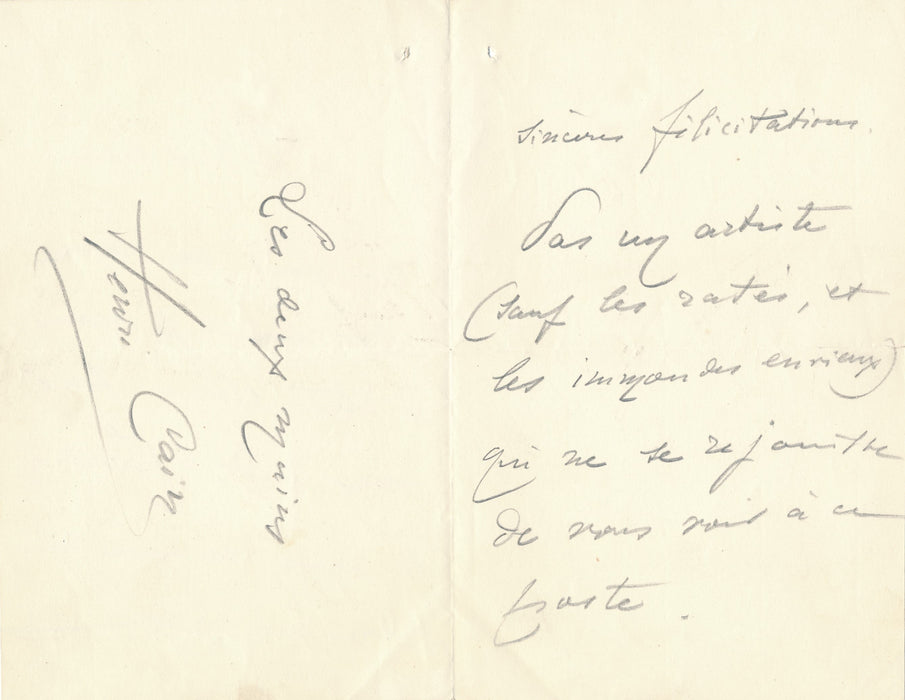 sincères félicitations.
Pas un artiste
(sauf les ratés, et
les immondes envieux)
qui ne se réjouisse
de vous voir à ce
poste.
Les deux mains
Henri Cain